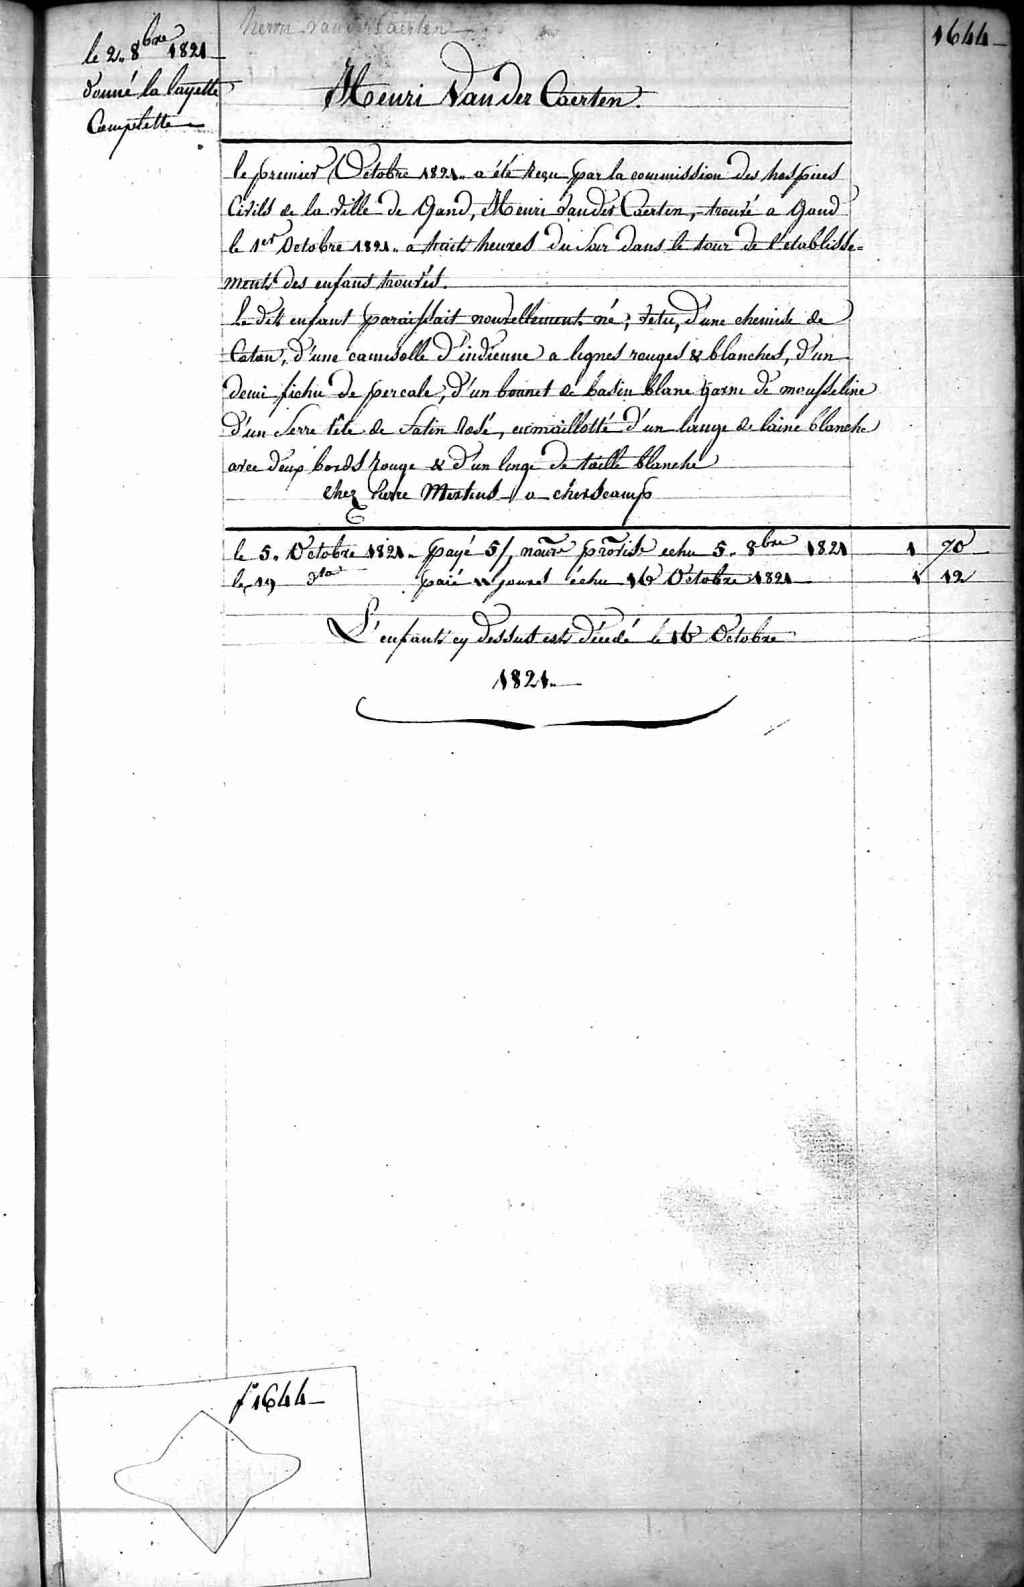 1644
le 2. 8bre 1821
donné la layette
Complette
Henri Vander Caerten
Henri Vander Caerten.
le premier Octobre 1821. a été reçu par la commission des hospices
Civils de la ville de Gand, Henri Vander Caerten, trouvé a Gand
le 1er Octobre 1821. a huit heures du soir dans le tour de l'etablisse=
ment des enfans trouvés.
Le dit enfant paraissait nouvellement né; vetu, d'une chemise de
Coton, d'une camisolle d'indienne a lignes rouges & blanches, d'un
demi fichu de percale, d'un bonnet de basin blanc garni de mousseline
d'un serre tête de satin rosé, emmaillotté d'un lange de laine blanche
avec deux bords rouge & d'un linge de toille blanche
Chez Pierre Mertens a cherscamp
le 5. Octobre 1821. payé 5/ nourre provise echu 5. 8bre 1821 1 70
le 19 dto paié 11 jours échu 16 Octobre 1821 1 12
L'enfant cy dessus est décedé le 16 Octobre
1821.
f° 1644